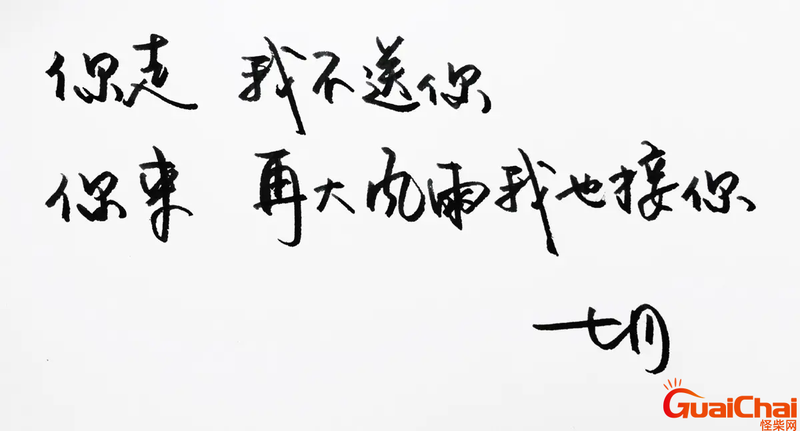 你走 我不送你
你来 再大风雨我也接你
七月
GuaiChai
怪柴网